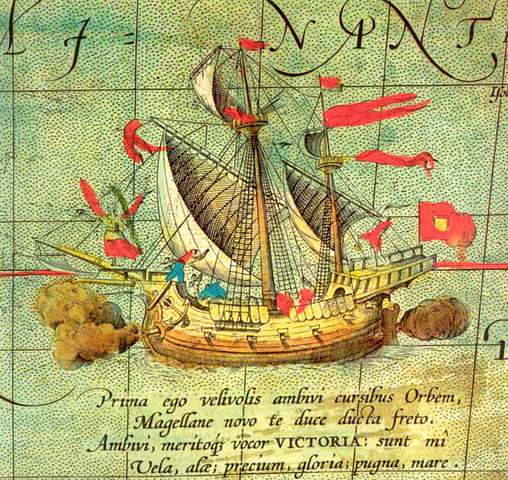 NANT
Prima ego velivolis ambivi cursibus Orbem,
Magellane novo te duce ducta freto.
Ambivi, meritoq; vocor VICTORIA: sunt mî
Vela, alæ; precium, gloria; pugna, mare.